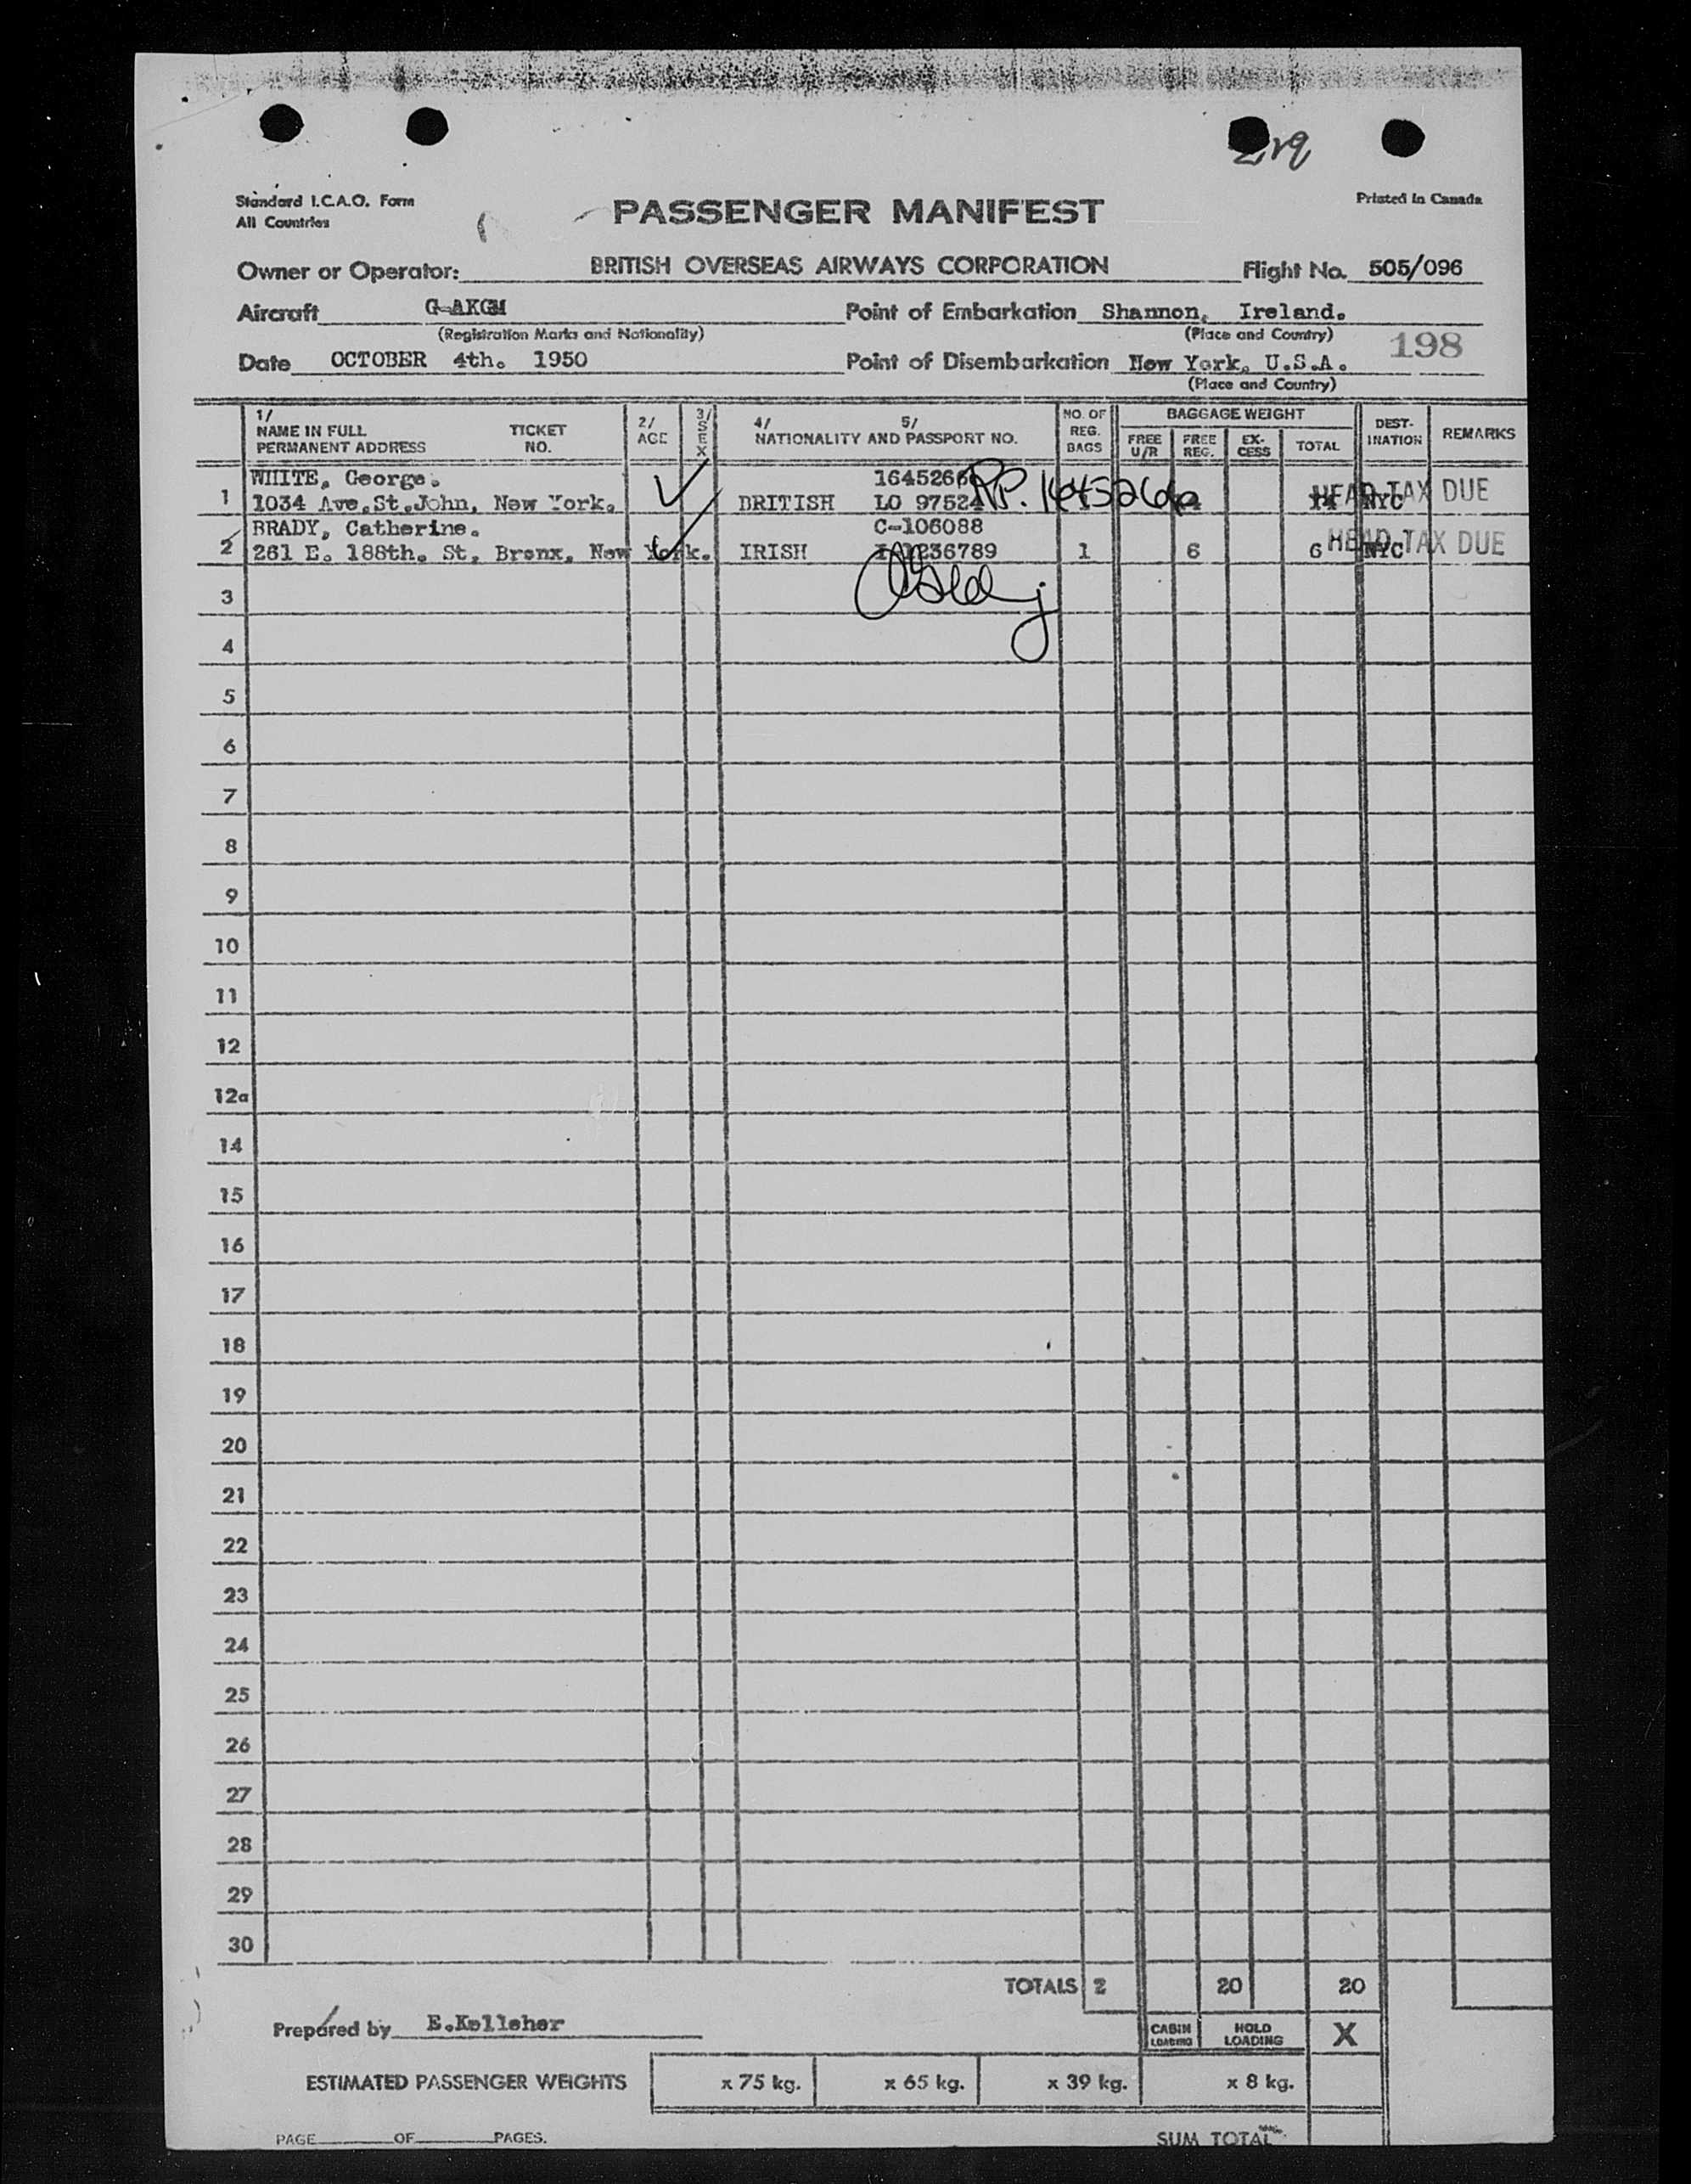 Standard I.C.A.O. Form
All Countries
PASSENGER MANIFEST
Printed in Canada
Owner or Operator: BRITISH OVERSEAS AIRWAYS CORPORATION Flight No. 505/096
Aircraft G-AKGM Point of Embarkation Shannon, Ireland.
(Registration Marks and Nationality) (Place and Country)
198
Date OCTOBER 4th. 1950 Point of Disembarkation New York, U.S.A.
(Place and Country)
1/ NAME IN FULL PERMANENT ADDRESS TICKET NO. 2/ AGE 3/ SEX 4/ 5/ NATIONALITY AND PASSPORT NO. NO. OF REG. BAGS BAGGAGE WEIGHT FREE U/R FREE REG. EX-CESS TOTAL DEST-INATION REMARKS
WHITE, George. 1645266 PP. 1645266 HEAD TAX DUE
1 1034 Ave.St.John, New York. BRITISH LO 97524 14 NYC
BRADY, Catherine. C-106088 HEAD TAX DUE
2 261 E. 188th. St, Bronx, New York. IRISH 1236789 1 6 6 NYC
3
4
5
6
7
8
9
10
11
12
12a
14
15
16
17
18
19
20
21
22
23
24
25
26
27
28
29
30
TOTALS 2 20 20
Prepared by E.Kelleher CABIN LOADING HOLD LOADING X
ESTIMATED PASSENGER WEIGHTS x 75 kg. x 65 kg. x 39 kg. x 8 kg.
PAGE OF PAGES. SUM TOTAL